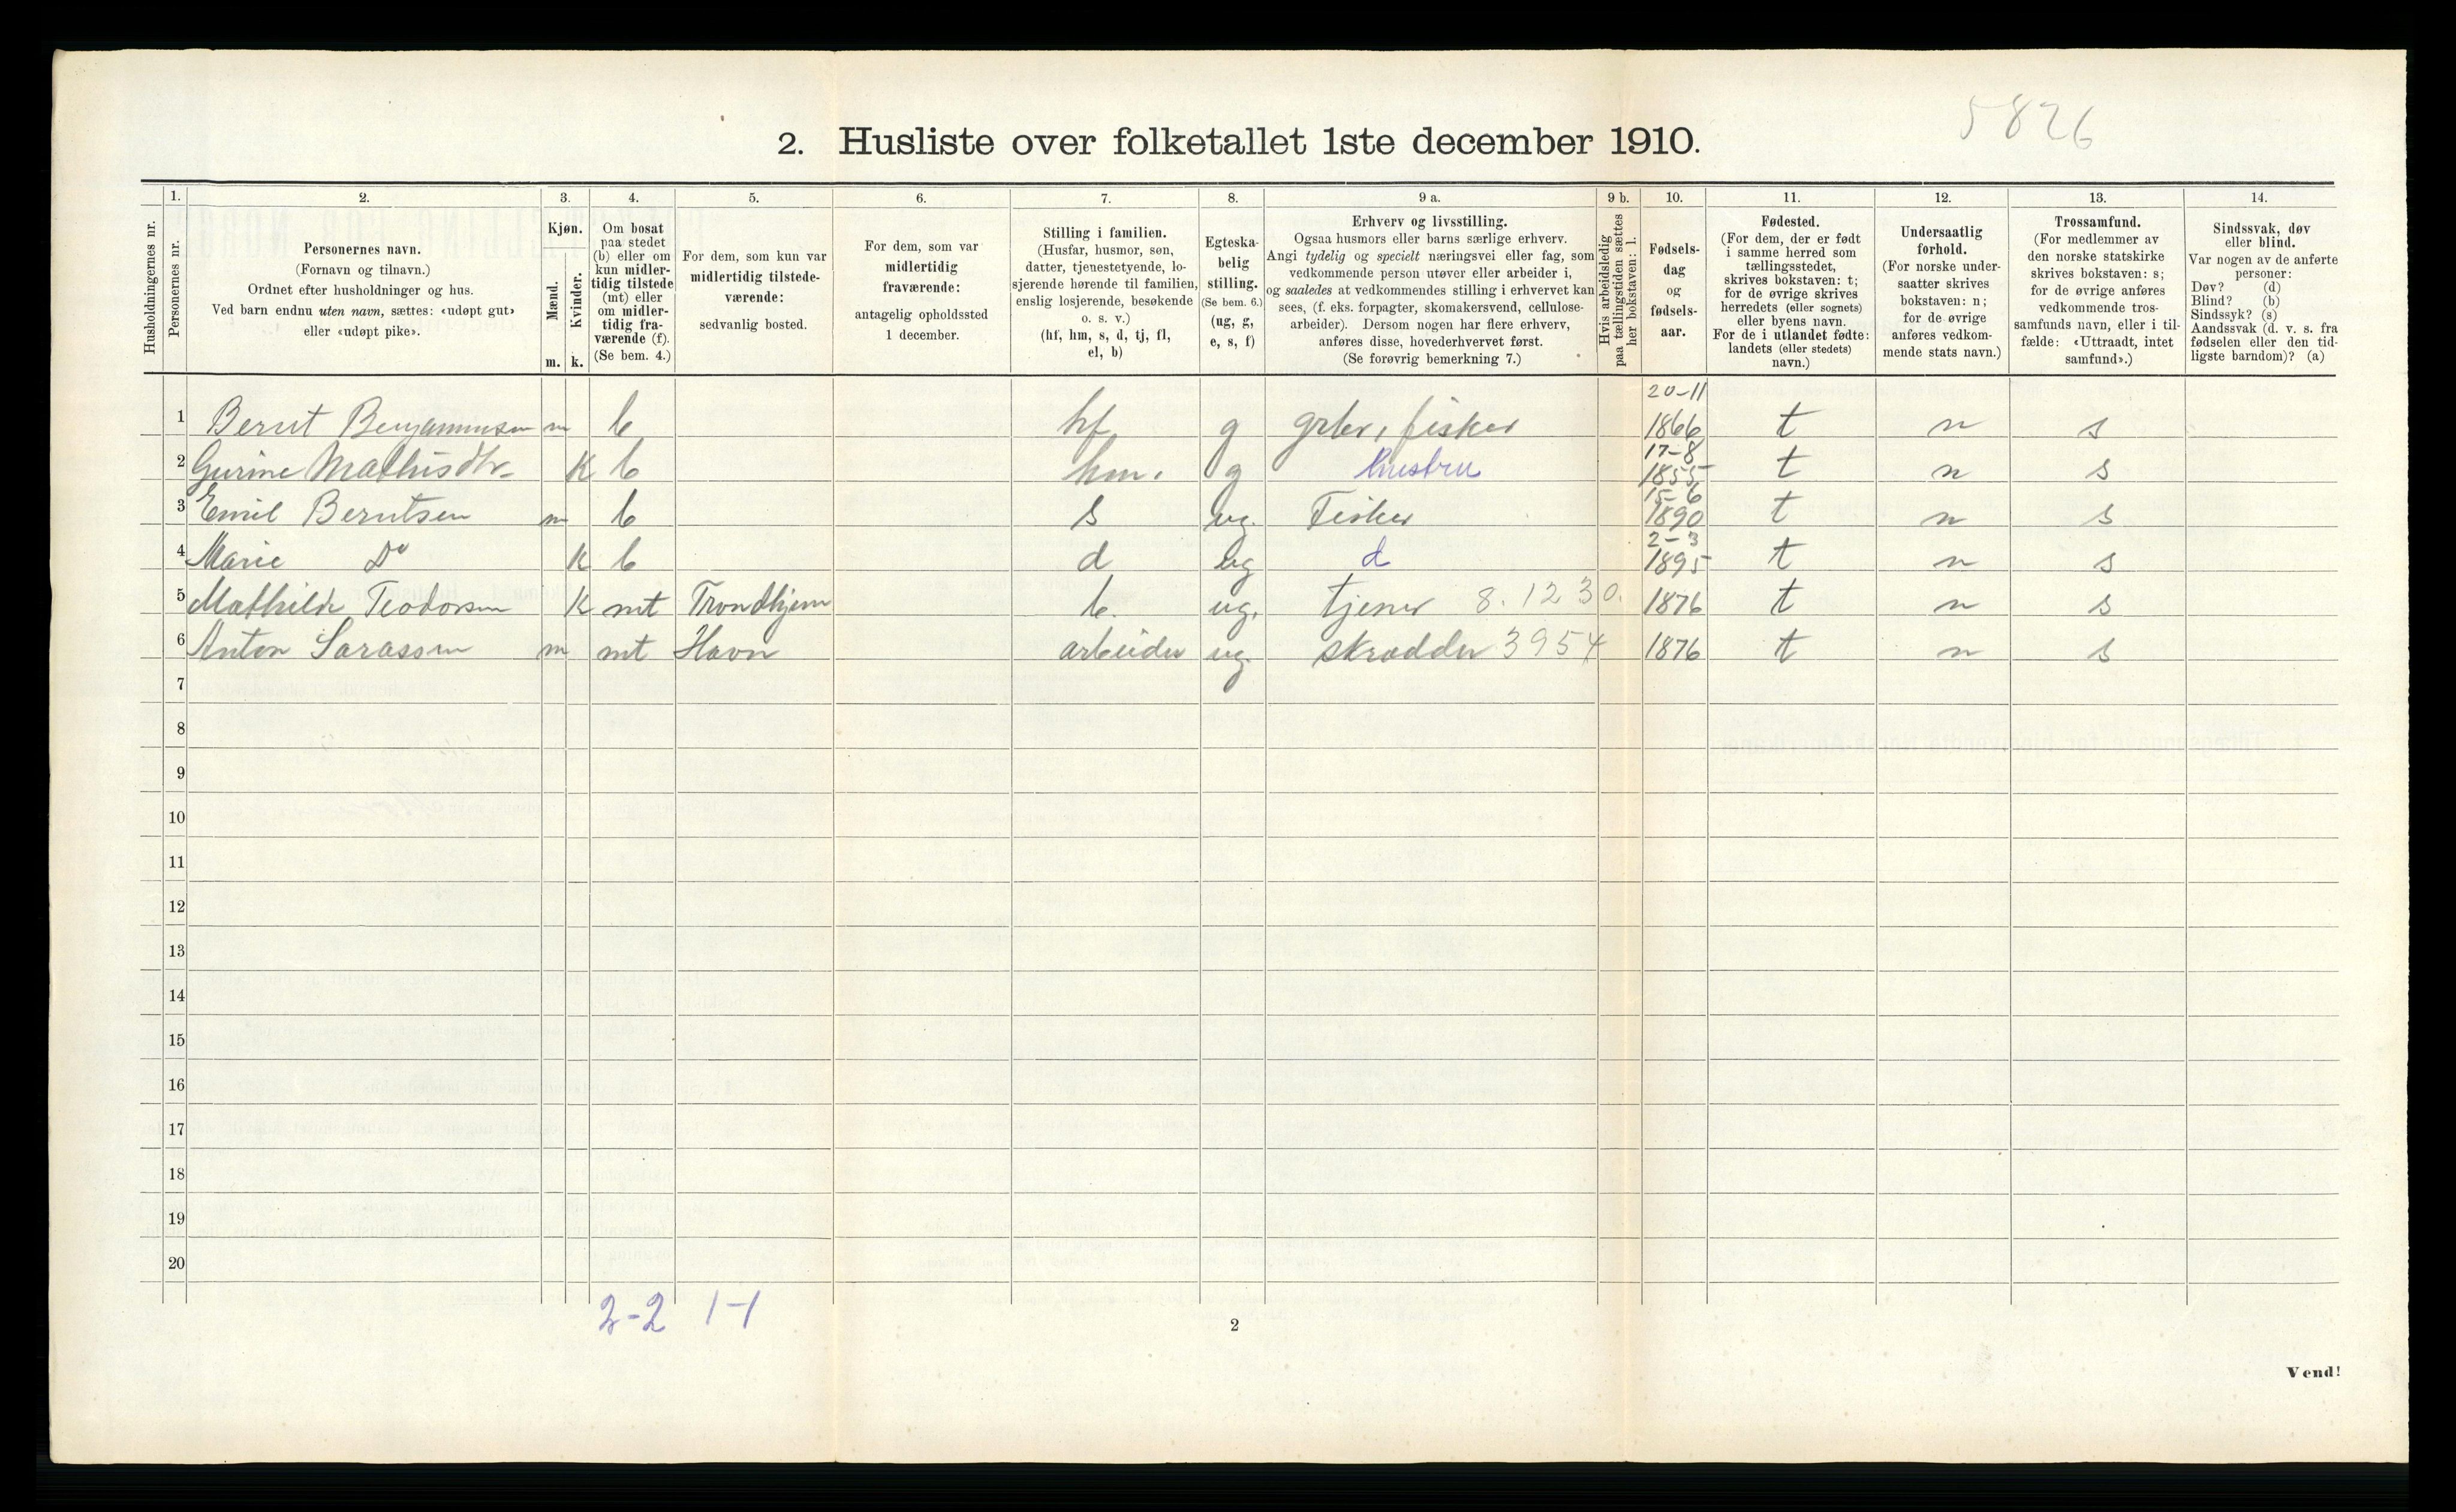 5826
2. Husliste over folketallet 1ste december 1910.
Husholdningernes nr.
1.
Personernes nr.
2.
Personernes navn.
(Fornavn og tilnavn.)
Ordnet efter husholdninger og hus.
Ved barn endnu uten navn, sættes: «udøpt gut»
eller «udøpt pike».
3.
Kjøn.
Mænd.
m.
Kvinder.
k.
4.
Om bosat
paa stedet
(b) eller om
kun midler-
tidig tilstede
(mt) eller
om midler-
tidig fra-
værende (f).
(Se bem. 4.)
5.
For dem, som kun var
midlertidig tilstede-
værende:
sedvanlig bosted.
6.
For dem, som var
midlertidig
fraværende:
antagelig opholdssted
1 december.
7.
Stilling i familien.
(Husfar, husmor, søn,
datter, tjenestetyende, lo-
sjerende hørende til familien,
enslig losjerende, besøkende
o. s. v.)
(hf, hm, s, d, tj, fl,
el, b)
8.
Egteska-
belig
stilling.
(Se bem. 6.)
(ug, g,
e, s, f)
9 a.
Erhverv og livsstilling.
Ogsaa husmors eller barns særlige erhverv.
Angi tydelig og specielt næringsvei eller fag, som
vedkommende person utøver eller arbeider i,
og saaledes at vedkommendes stilling i erhvervet kan
sees, (f. eks. forpagter, skomakersvend, cellulose-
arbeider). Dersom nogen har flere erhverv,
anføres disse, hovederhvervet først.
(Se forøvrig bemerkning 7.)
9 b.
Hvis arbeidsledig
paa tællingstiden sættes
her bokstaven: l.
10.
Fødsels-
dag
og
fødsels-
aar.
11.
Fødested.
(For dem, der er født
i samme herred som
tællingsstedet,
skrives bokstaven: t;
for de øvrige skrives
herredets (eller sognets)
eller byens navn.
For de i utlandet fødte:
landets (eller stedets)
navn.)
12.
Undersaatlig
forhold.
(For norske under-
saatter skrives
bokstaven: n;
for de øvrige
anføres vedkom-
mende stats navn.)
13.
Trossamfund.
(For medlemmer av
den norske statskirke
skrives bokstaven: s;
for de øvrige anføres
vedkommende tros-
samfunds navn, eller i til-
fælde: «Uttraadt, intet
samfund».)
14.
Sindssvak, døv
eller blind.
Var nogen av de anførte
personer:
Døv? (d)
Blind? (b)
Sindssyk? (s)
Aandssvak (d. v. s. fra
fødselen eller den tid-
ligste barndom)? (a)
1 Bernt Benjaminsen m b hf g grbr, fisker 20-11 1866 t n s
2 Gurine Mathisdtr k b hm. g hustru 17-8 1855 t n s
3 Emil Berntsen m b s ug. Fisker 15-6 1890 t n s
4 Marie Do k b d ug d 2-3 1895 t n s
5 Mathilde Teodorsen k mt Trondhjem b. ug. tjener 8.1230. 1876 t n s
6 Anton Sarassen m mt Havn arbeider ug. skrædder 3954 1876 t n s
7
8
9
10
11
12
13
14
15
16
17
18
19
20
2-2 1-1
2
Vend!